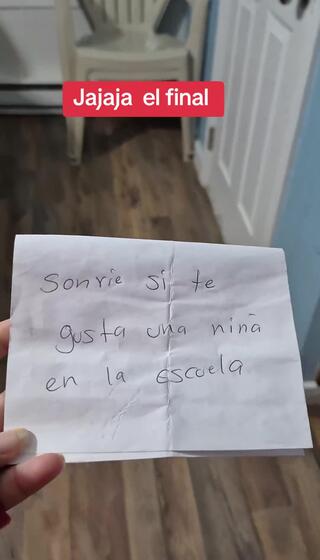 Jajaja el final
Sonrie si te
gusta una niña
en la escuela